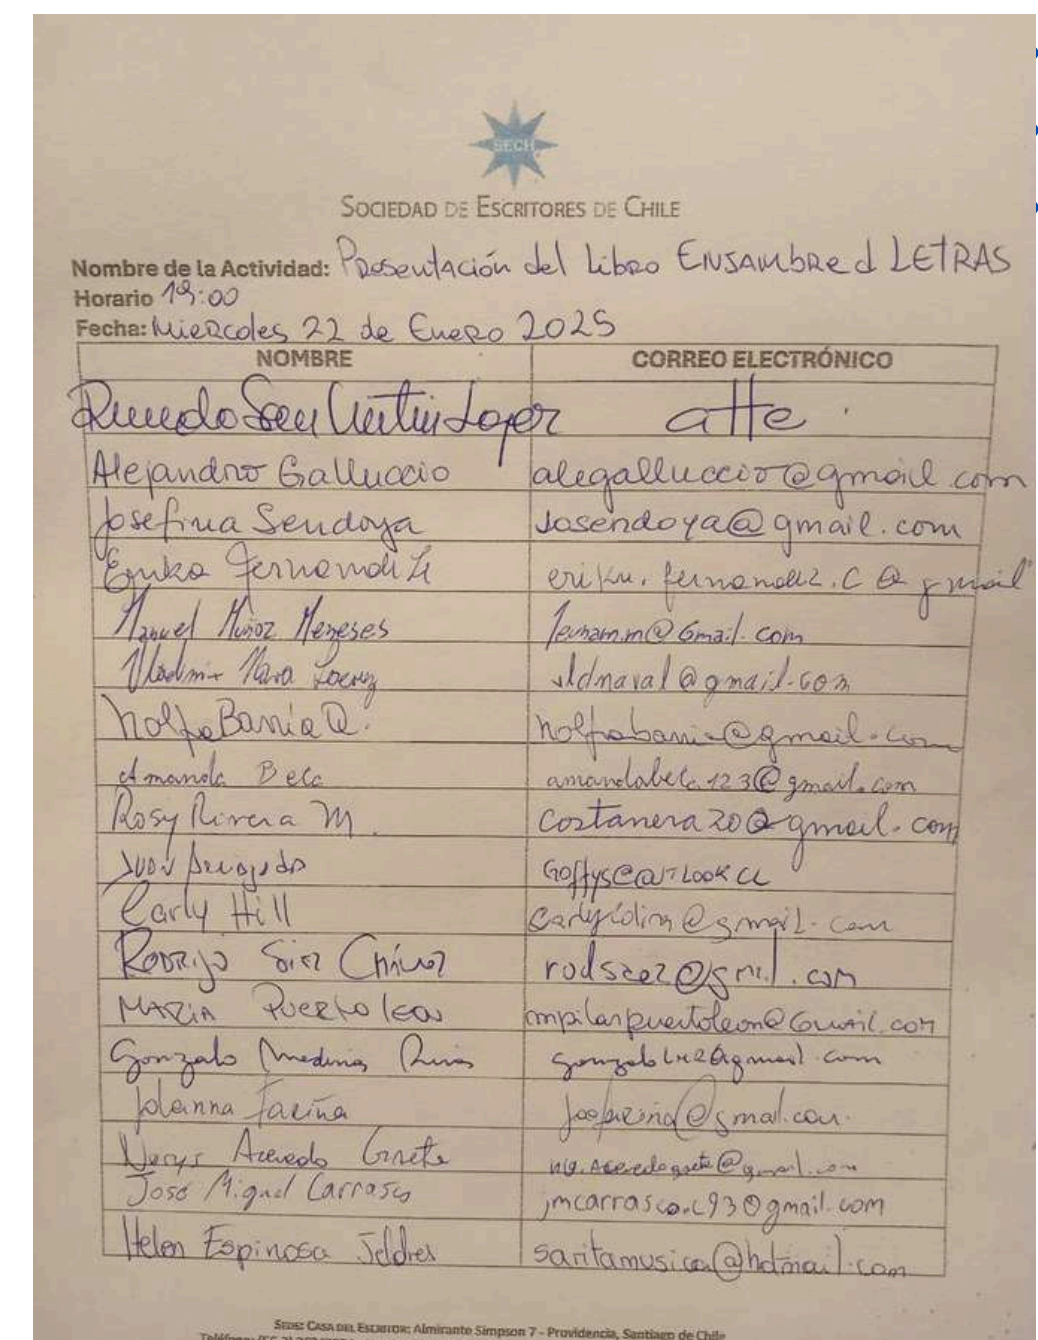 SECH
SOCIEDAD DE ESCRITORES DE CHILE
Nombre de la Actividad: Presentación del Libro ENSAMBRE d LETRAS
Horario 19:00
Fecha: Miercoles 22 de Enero 2025
NOMBRE CORREO ELECTRÓNICO
San Martin Lopez atte.
Alejandro Galluccio alegalluccio@gmail.com
Josefina Sendoya josendoya@gmail.com
Erika Fernandez erika.fernandez.c@gmail
Manuel Muñoz Meneses @Gmail.com
Vladimir Nava vldnaval@gmail.com
Nolfa Barría Q. nolfabarria@gmail.com
Amanda Bela amandabela123@gmail.com
Rosy Rivera M. costanera20@gmail.com
Juan Goffys@OUTLOOK CL
Carly Hill @gmail.com
Rodrigo
MARIA Puerto león mpilarpuertoleon@Gmail.com
Gonzalo Medina
Johanna Fariña
Nerys Acevedo
José Miguel Carrasco jmcarrasco.c93@gmail.com
Helen Espinosa Jeldres saritamusica@hotmail.com
SEDE: CASA DEL ESCRITOR: Almirante Simpson 7 - Providencia, Santiago de Chile